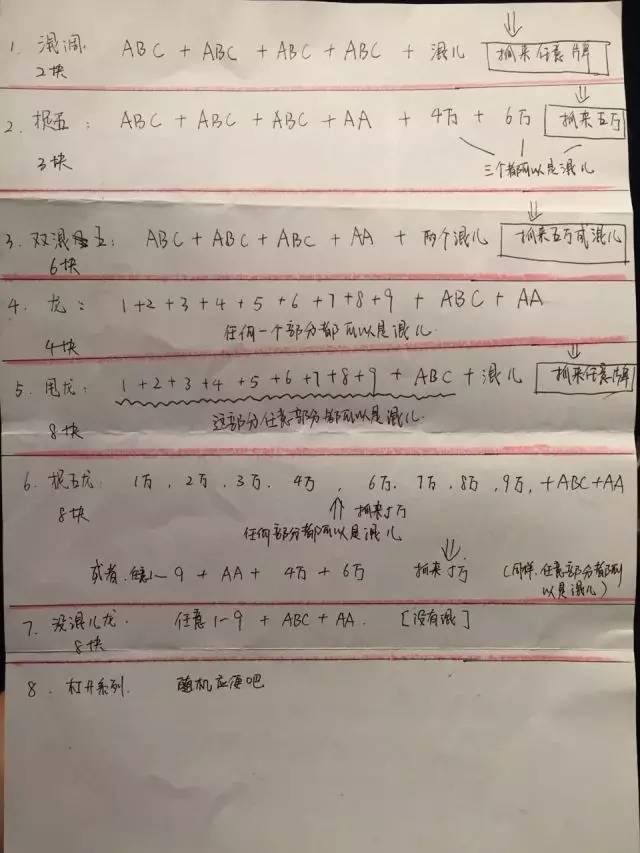 1. 混调. ABC + ABC + ABC + ABC + 混儿 抓来任意牌
2块
2. 捉五: ABC + ABC + ABC + AA + 4万 + 6万 抓来五万
3块 三个都可以是混儿
3. 双混五: ABC + ABC + ABC + AA + 两个混儿 抓来五万或混儿
6块
4. 龙: 1+2+3+4+5+6+7+8+9 + ABC + AA
4块 任何一个部分都可以是混儿
5. 甩龙: 1+2+3+4+5+6+7+8+9 + ABC + 混儿 抓来任意牌
8块 这部分任意部分都可以是混儿.
6. 捉五龙: 1万, 2万, 3万, 4万, 6万, 7万, 8万, 9万, +ABC+AA
8块 抓来5万
任何部分都可以是混儿
或者.任意1~9 + AA + 4万 + 6万 抓来5万 (同样.任意部分都可以是混儿)
7. 没混儿龙. 任意1-9 + ABC + AA. [没有混]
8块
8. 杠开系列. 随机应变吧